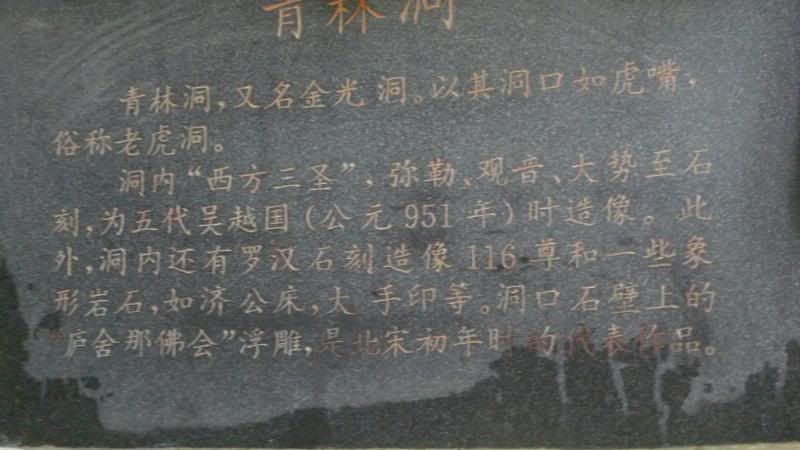 青林洞
青林洞，又名金光洞。以其洞口如虎嘴，
俗称老虎洞。
洞内“西方三圣”，弥勒、观音、大势至石
刻，为五代吴越国（公元951年）时造像。此
外，洞内还有罗汉石刻造像116尊和一些象
形岩石，如济公床，大手印等。洞口石壁上的
“庐舍那佛会”浮雕，是北宋初年时的代表作品。